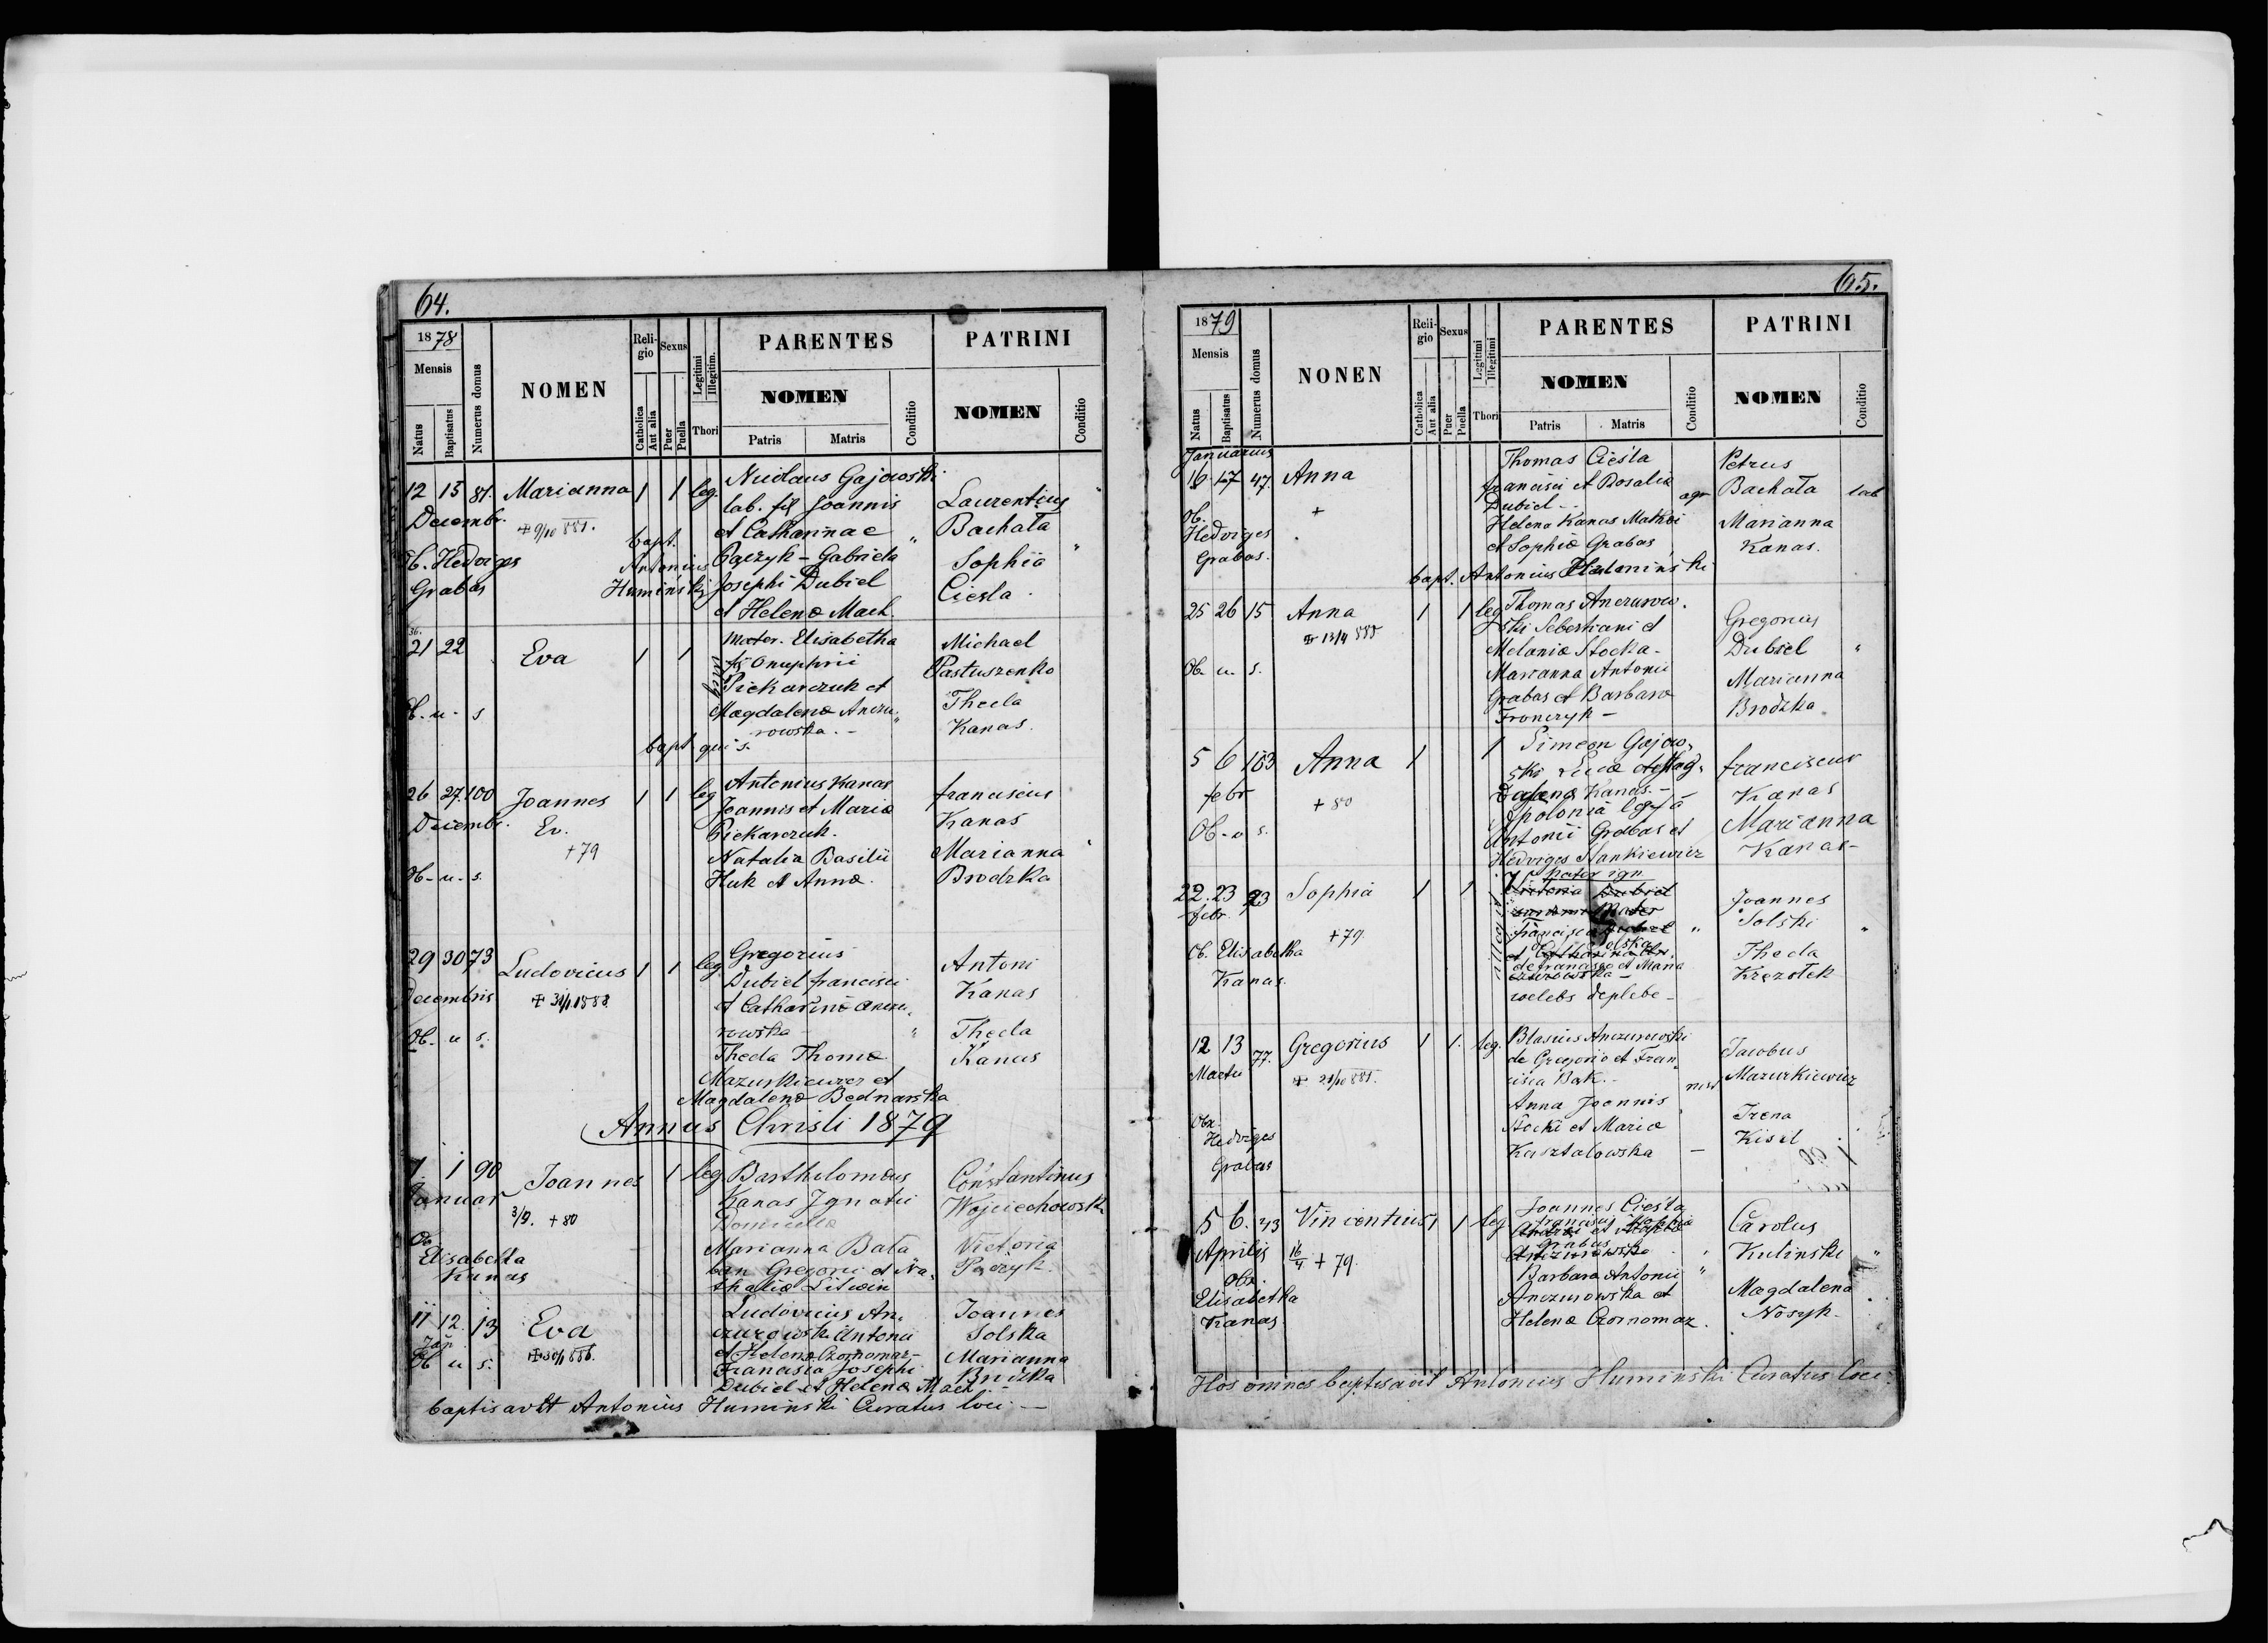 64.
1878
Mensis
Natus
Baptisatus
Numerus domus
NOMEN
Religio
Catholica
Aut alia
Sexus
Puer
Puella
Legitimi
Illegitim.
Thori
PARENTES
NOMEN
Patris
Matris
Conditio
PATRINI
NOMEN
Conditio
12 15 81. Marianna 1 1 leg.
Decembr.
+ 9/10 881.
Ob. Hedviges
Grabas
bapt.
Antonius
Humiński
Nicolaus Gajowski
lab. fil Joannis
et Catharinae
Pączyk - Gabriela
Josephi Dubiel
et Helenæ Mach
Laurentius
Bachata
Sophia
Ciesla
36.
21 22 Eva 1 1
Ob. u. s
Mater. Elisabetha
fil Onuphrii
Piekarczuk et
Magdalenæ Anczu
rowska. -
bapt qui s.
Michael
Pastuszenko
Thecla
Kanas.
26 27. 100 Joannes 1 1 leg
Decembr. Ev.
+79
Ob - u - s.
Antonius Kanas
Joannis et Mariæ
Piekarczuk.
Natalia Basilii
Huk et Annæ.
franciscus
Kanas
Marianna
Brodzka
29 30 73 Ludovicus 1 1 leg
Decembris
+ 31/1 1888
Ob - u s.
Gregorius
Dubiel francisci
et Catharinæ Anczu
rowska -
Thecla Thomæ
Mazurkiewicz et
Magdalenæ Bednarska
Antoni
Kanas
Thecla
Kanas
Annus Christi 1879
1. 1 90 Joannes 1 leg
Januar
3/9. + 80
Ob
Elisabetha
Kanas
Bartholomæus
Kanas Ignatii
Marianna Bała
ban Gregorii et Na
thaliæ Litwin
Constantinus
Wojciechowski
Victoria
Pączyk.
11 12. 13 Eva
Jan
Ob u s.
+ 30/1 886.
Ludovicus An
czurowski Antonii
et Helenæ Czornomaz -
Francisca Josephi
Dubiel et Helenæ Mach
Joannes
Solska
Marianna
baptisavit Antonius Huminski Curatus loci -
65.
1879
Mensis
Natus
Baptisatus
Numerus domus
NONEN
Religio
Catholica
Aut alia
Sexus
Puer
Puella
Legitimi
Illegitimi
Thori
PARENTES
NOMEN
Patris
Matris
Conditio
PATRINI
NOMEN
Conditio
Januarius
16 17 47. Anna
+
Ob.
Hedviges
Grabas.
Thomas Cieśla
francisci et Rosaliæ
Dubiel - agr
Helena Kanas Mathei
et Sophiæ Grabas
bapt. Antonius Huminski
Petrus
Bachata lab
Marianna
Kanas.
25 26 15 Anna 1 1 leg
+ 13/4 885
Ob - u - s.
Thomas Anczurow
ski Sebastiani et
Melaniæ Stocka -
Marianna Antonii
Grabas et Barbaræ
Fronczyk -
Gregorius
Dubiel
Marianna
Brodzka
5 6 103 Anna 1 1
febr
+ 80
Ob - u s.
Simeon Gajow
ski Lucæ et Mag
dalenæ Kanas. -
Apolonia
Antonii Grabas et
Hedviges Stankiewicz
franciscus
Kanas
Marianna
Kanas -
22. 23 23 Sophia 1 1
febr.
+79
Ob. Elisabetha
Kanas.
Pater ign
Victoria Dubiel
de francisco et Maria
coelebs deplebe -
Joannes
Solski
Thecla
Krzołek
12 13 77. Gregorius 1 1. leg.
Martii
+ 21/10 881.
Obx.
Hedviges
Grabas
Blasius Anczurowski
de Gregorio et Fran
cisca Bąk. -
Anna Joannis
Stocki et Mariæ
Kasztalowska -
Jacobus
Mazurkiewicz
Irena
Kisil
5 6. 43 Vincentius 1 1 leg
Aprilis
16/4 + 79.
Obx.
Elisabetha
Kanas
Joannes Cieśla
francisci
Grabas
Anczurowska
Barbara Antonii
Anczurowska et
Helenæ Czornomaz.
Carolus
Kulinski
Magdalena
Nosyk.
Hos omnes baptisavit Antonius Huminski Curatus loci.